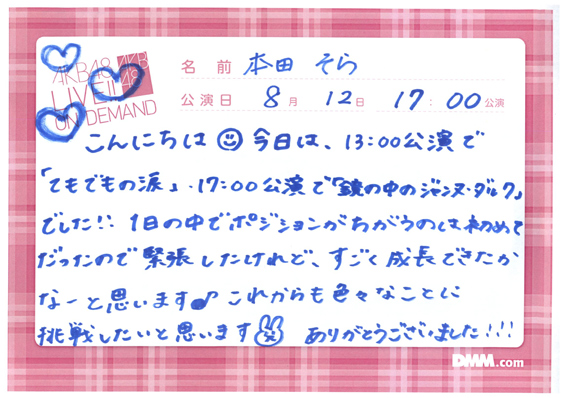 AKB48
AKB48
LIVE!!
ON DEMAND
名前 本田 そら
公演日 8月 12日 17:00公演
こんにちは 今日は、13:00公演で
「てもでもの涙」、17:00公演で「鏡の中のジャンヌ・ダルク」
でした!! 1日の中でポジションがちがうのは初めて
だったので緊張したけれど、すごく成長できたか
なーと思います♪ これからも色々なことに
挑戦したいと思います ありがとうございました!!!
DMM.com